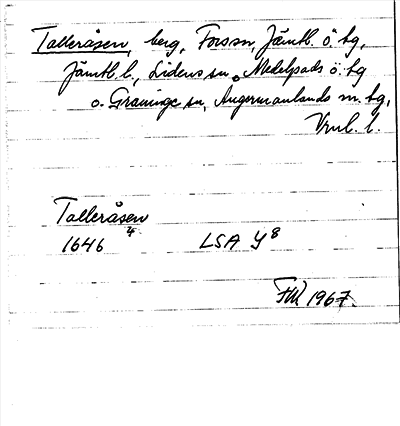 Talleråsen, berg, Fors sn, Jämtl. ö. tg,
Jämtl. l., Lidens sn o. Medelpads ö. tg
o. Graninge sn, Ångermanlands m. tg,
Vnrl. l.
Talleråsen
1646 4 LSA Y8
1967.